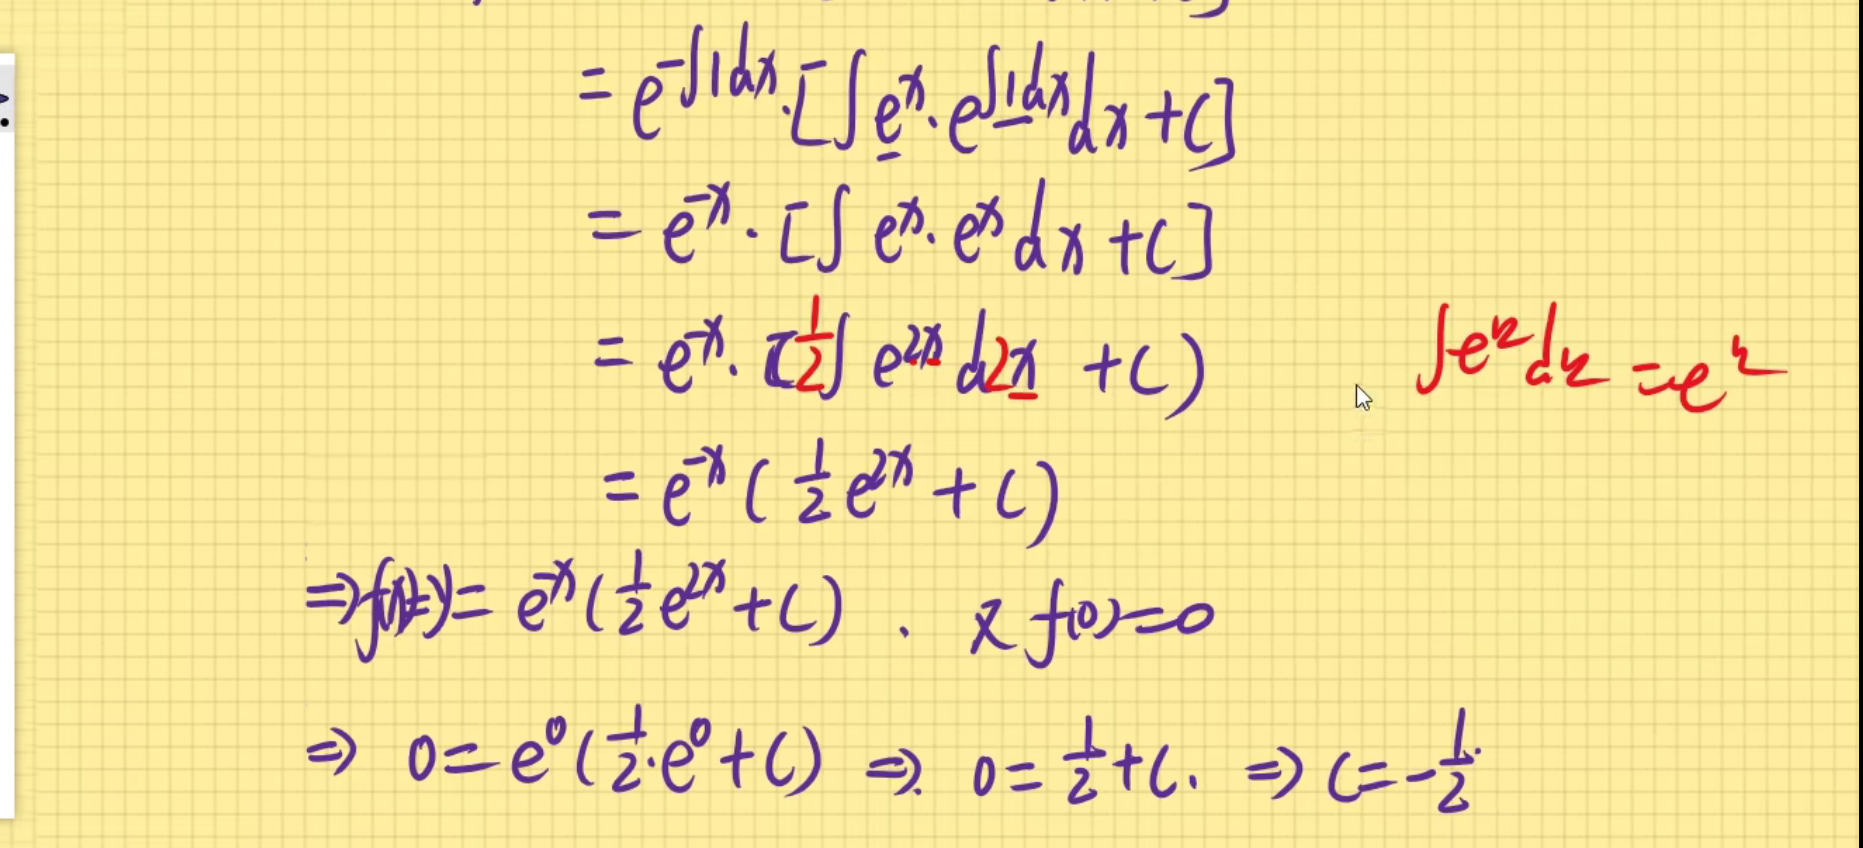 = e^{-∫1dx}·[∫e^x·e^{∫1dx}dx+C]
= e^{-x}·[∫e^x·e^x dx+C]
= e^{-x}·[½∫e^{2x}d2x+C) ∫e^u du=e^u
= e^{-x}(½e^{2x}+C)
⇒f(x)= e^{-x}(½e^{2x}+C). 又f(0)=0
⇒ 0=e^0(½·e^0+C) ⇒ 0=½+C. ⇒ C=-½.